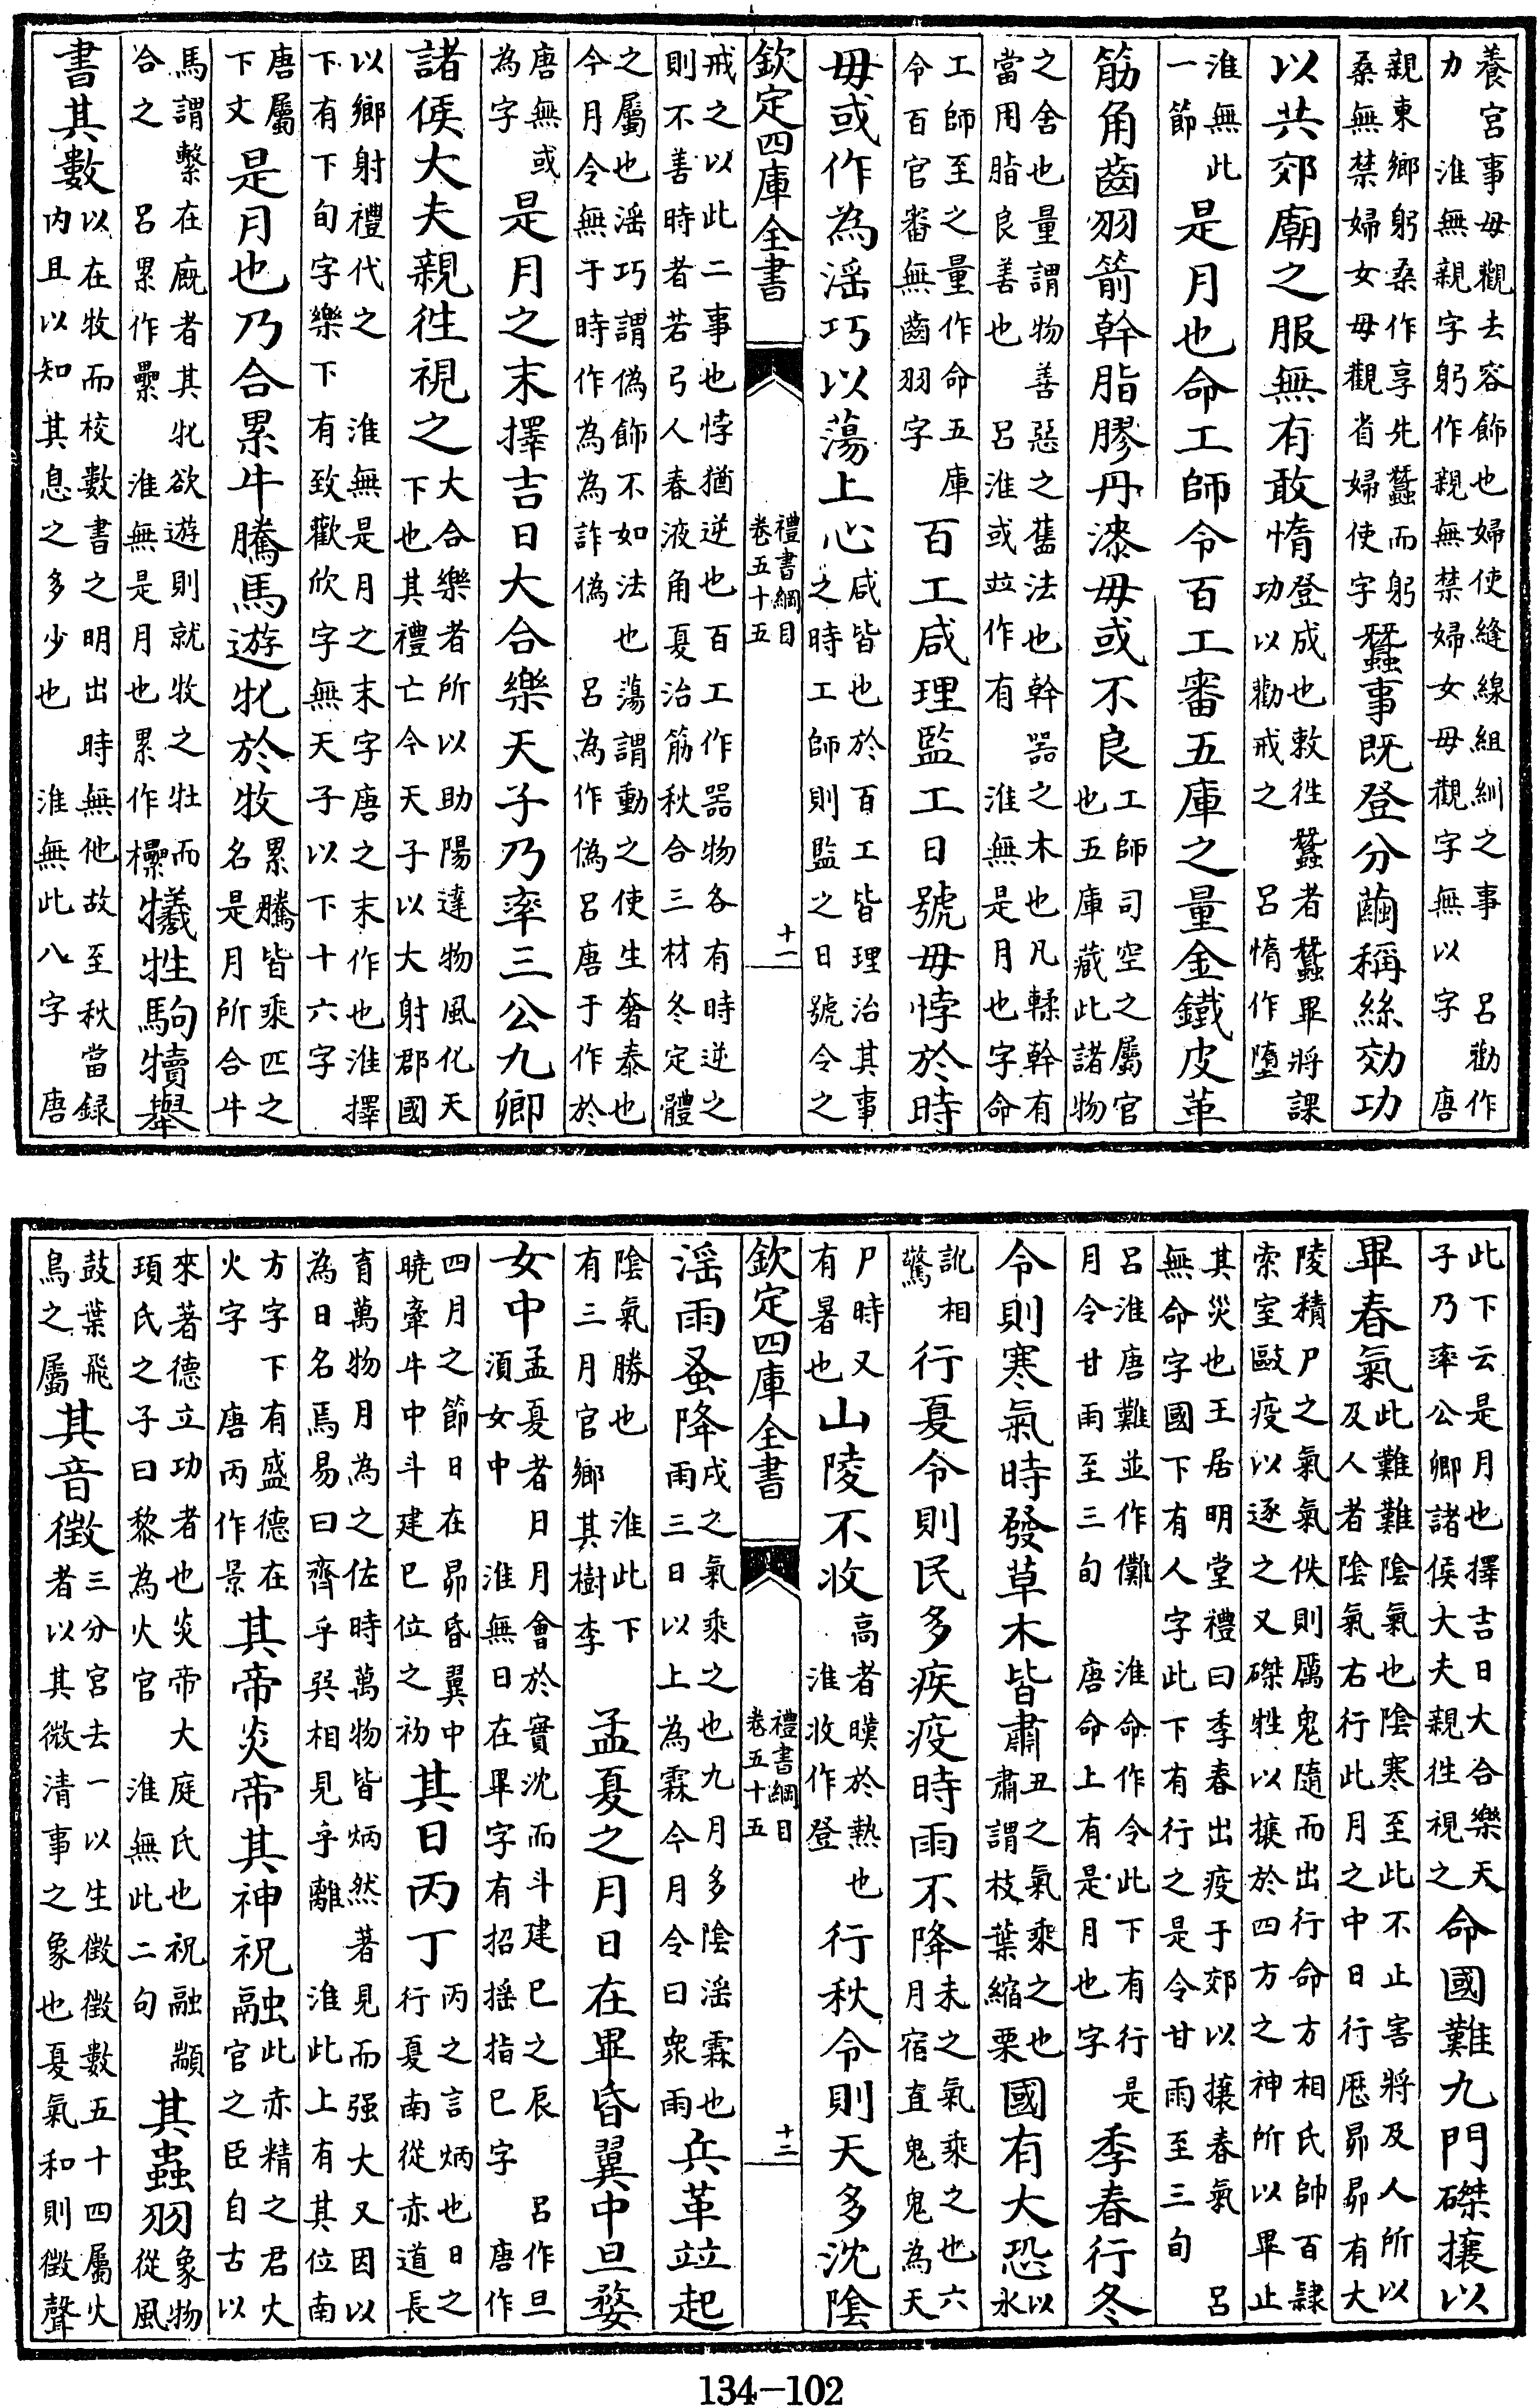 養宮事毋觀去容飾也婦使縫線組紃之事 呂勸作
力 淮無親字躬作親無禁婦女毋觀字無以字 唐
親東鄉躬桑作享先蠶而躬
桑無禁婦女毋觀省婦使字
蠶事既登分繭稱絲効功
以共郊廟之服無有敢惰
登成也敕往蠶者蠶畢將課
功以勸戒之 呂惰作墮
淮無此
一節
是月也命工師令百工審五庫之量金鐵皮革
筋角齒羽箭幹脂膠丹漆毋或不良
工師司空之屬官
也五庫藏此諸物
之舍也量謂物善惡之舊法也幹器之木也凡輮幹有
當用脂良善也 呂淮或並作有 淮無是月也字命
工師至之量作命五庫
令百官審無齒羽字
百工咸理監工日號毋悖於時
毋或作為淫巧以蕩上心
咸皆也於百工皆理治其事
之時工師則監之日號令之
欽定四庫全書
禮書綱目
卷五十五
十一
戒之以此二事也悖猶逆也百工作器物各有時逆之
則不善時者若弓人春液角夏治筋秋合三材冬定體
之屬也淫巧謂偽飾不如法也蕩謂動之使生奢泰也
今月令無于時作為為詐偽 呂為作偽呂唐于作於
唐無或
為字
是月之末擇吉日大合樂天子乃率三公九卿
諸侯大夫親往視之
大合樂者所以助陽達物風化天
下也其禮亡今天子以大射郡國
以鄉射禮代之 淮無是月之末字唐之末作也淮擇
下有下旬字樂下有致歡欣字無天子以下十六字
唐屬
下文
是月也乃合累牛騰馬遊牝於牧
累騰皆乘匹之
名是月所合牛
馬謂繫在廐者其牝欲遊則就牧之牡而
合之 呂累作纍 淮無是月也累作欙
犧牲駒犢舉
書其數
以在牧而校數書之明出時無他故至秋當録
内且以知其息之多少也 淮無此八字 唐
此下云是月也擇吉日大合樂天
子乃率公卿諸侯大夫親往視之
命國難九門磔攘以
畢春氣
此難難陰氣也陰寒至此不止害將及人所以
及人者陰氣右行此月之中日行歷昴昴有大
陵積尸之氣氣佚則厲鬼隨而出行命方相氏帥百隸
索室毆疫以逐之又磔牲以攘於四方之神所以畢止
其災也王居明堂禮曰季春出疫于郊以攘春氣 呂
無命字國下有人字此下有行之是令甘雨至三旬
呂淮唐難並作儺 淮命作令此下有行是
月令甘雨至三旬 唐命上有是月也字
季春行冬
令則寒氣時發草木皆肅
丑之氣乘之也
肅謂枝葉縮栗
國有大恐
以
水
訛相
驚
行夏令則民多疾疫時雨不降
未之氣乘之也六
月宿直鬼鬼為天
尸時又
有暑也
山陵不收
高者暵於熱也
淮收作登
行秋令則天多沈陰
欽定四庫全書
禮書綱目
卷五十五
十二
淫雨蚤降
戌之氣乘之也九月多陰淫霖也
雨三日以上為霖今月令曰衆雨
兵革竝起
陰氣勝也 淮此下
有三月官鄉其樹李
孟夏之月日在畢昏翼中旦婺
女中
孟夏者日月會於實沈而斗建巳之辰 呂作旦
須女中 淮無日在畢字有招摇指巳字 唐作
四月之節日在昴昏翼中
曉牽牛中斗建巳位之初
其日丙丁
丙之言炳也日之
行夏南從赤道長
育萬物月為之佐時萬物皆炳然著見而强大又因以
為日名焉易曰齊乎巽相見乎離 淮此上有其位南
方字下有盛德在
火字 唐丙作景
其帝炎帝其神祝融
此赤精之君火
官之臣自古以
來著德立功者也炎帝大庭氏也祝融顓
頊氏之子曰黎為火官 淮無此二句
其蟲羽
象物
從風
鼓葉飛
鳥之屬
其音徵
三分宮去一以生徵徵數五十四屬火
者以其微清事之象也夏氣和則徵聲
134—102